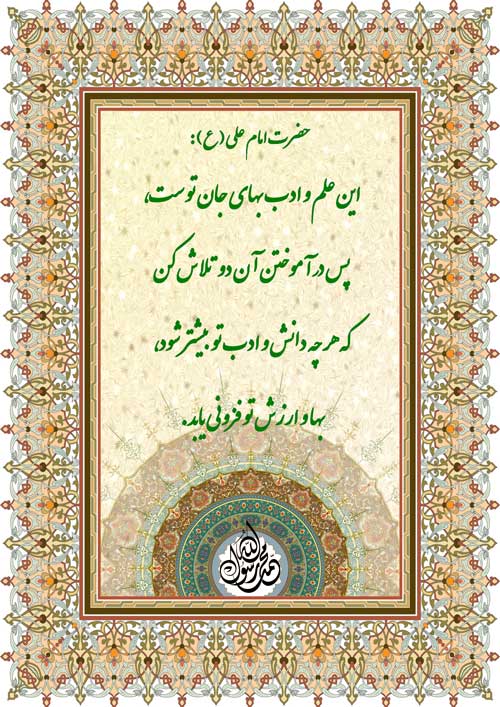 حضرت امام علی (ع):
این علم و ادب بهای جان توست،
پس در آموختن آن دو تلاش کن
که هر چه دانش و ادب تو بیشتر شود،
بها و ارزش تو فزونی یابد.
محمد رسول الله